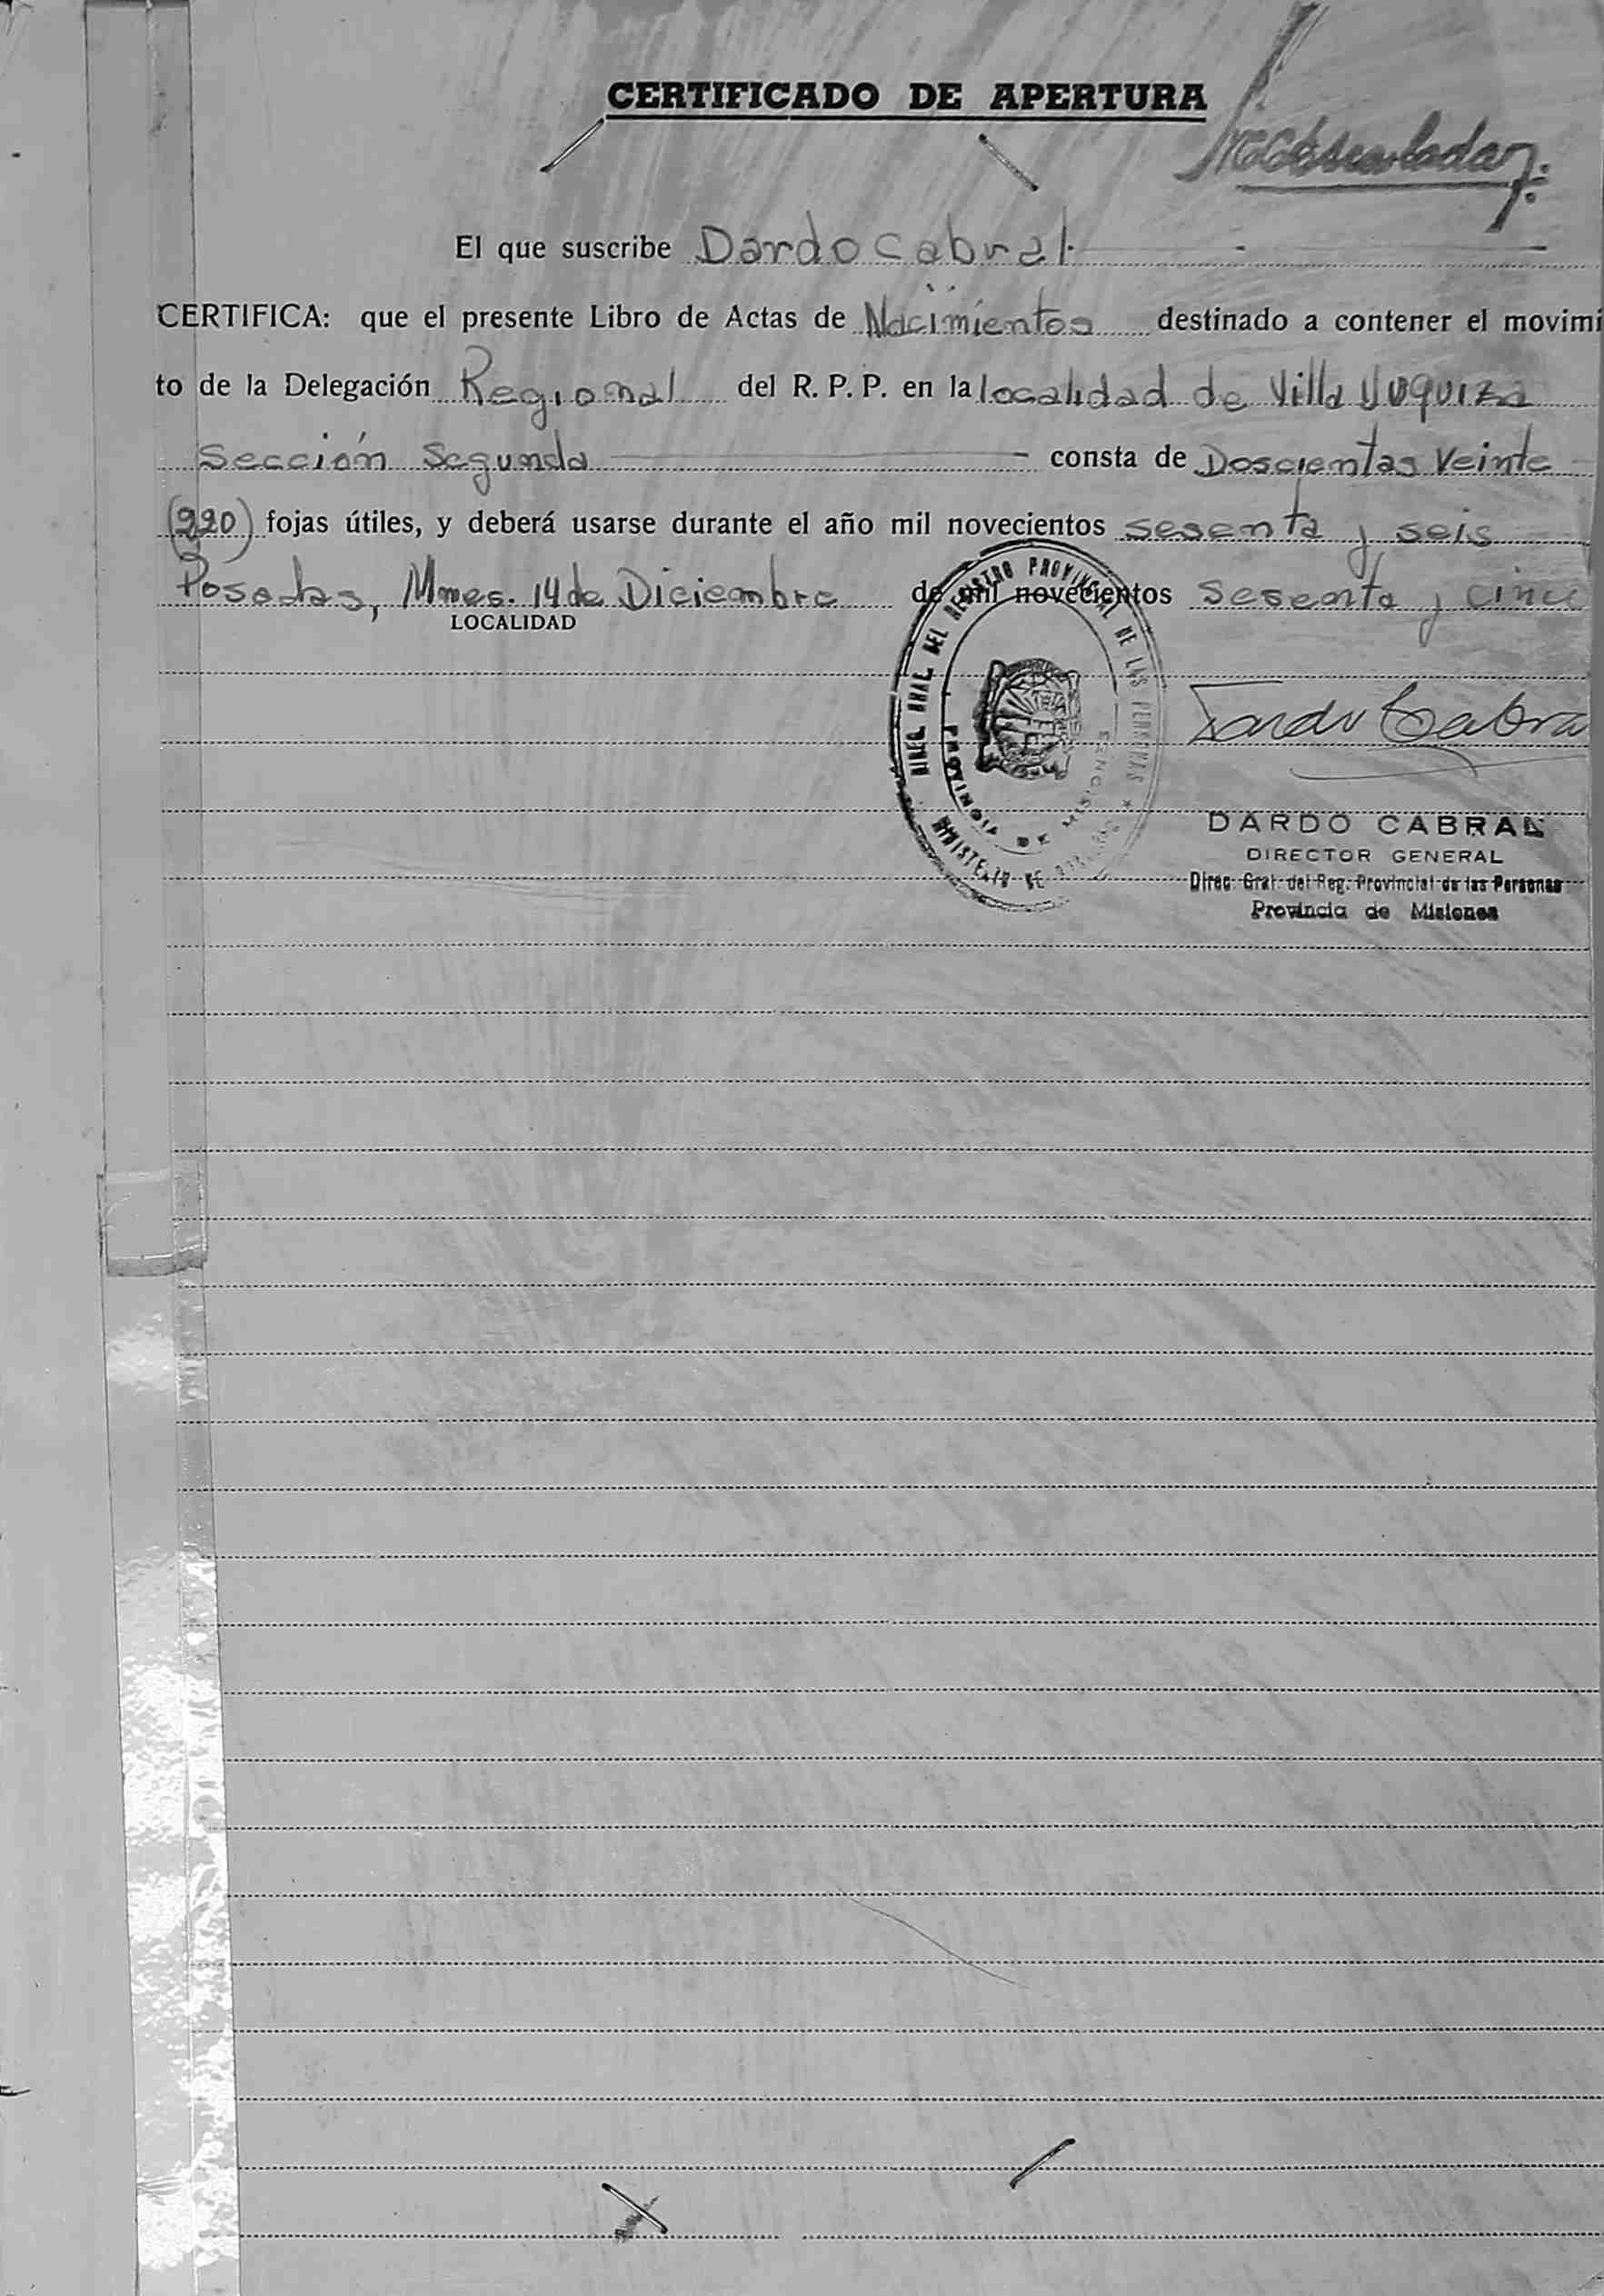 CERTIFICADO DE APERTURA
El que suscribe Dardo Cabral
CERTIFICA: que el presente Libro de Actas de Nacimientos destinado a contener el movimi
to de la Delegación Regional del R. P. P. en la localidad de Villa Urquiza
Sección Segunda consta de Doscientas Veinte
(220) fojas útiles, y deberá usarse durante el año mil novecientos sesenta y seis
Posadas, Mnes. 14 de Diciembre de mil novecientos sesenta y cinco
LOCALIDAD
DIREC. GRAL. DEL REGISTRO PROVINCIAL DE LAS PERSONAS
PROVINCIA DE MISIONES
MINISTERIO DE
Dardo Cabral
DARDO CABRAL
DIRECTOR GENERAL
Direc. Gral. del Reg. Provincial de las Personas
Provincia de Misiones